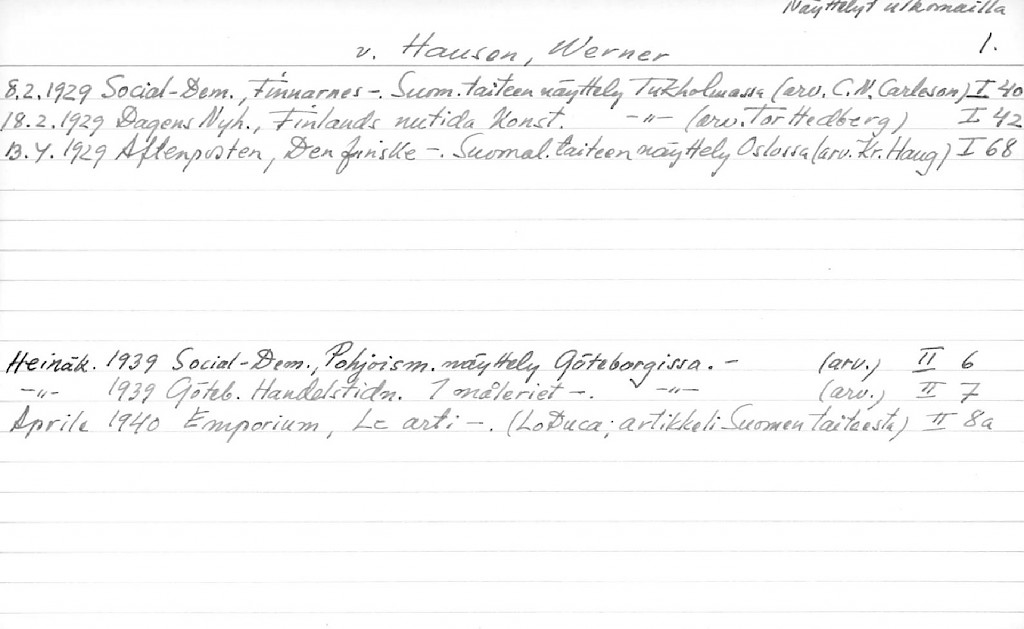 Näyttelyt ulkomailla
1.
v. Hausen, Werner
8.2.1929 Social-Dem., Finnarnes -. Suom. taiteen näyttely Tukholmassa (arv. C.N. Carleson) I 40
18.2.1929 Dagens Nyh., Finlands nutida Konst. -"- (arv. Tor Hedberg) I 42
13.4.1929 Aftenposten, Den finske -. Suomal. taiteen näyttely Oslossa (arv. Kr. Haug) I 68
Heinäk. 1939 Social-Dem., Pohjoism. näyttely Göteborgissa. - (arv.) II 6
-"- 1939 Göteb. Handelstidn. I måleriet -. -"- (arv.) II 7
Aprile 1940 Emporium, Le arti -. (LoDuca; artikkeli Suomen taiteesta) II 8a